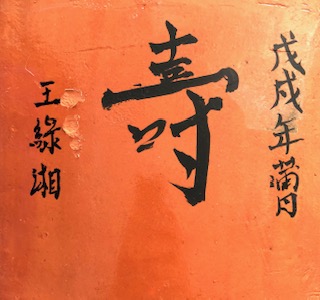 戊戌年月
壽
王綠湘